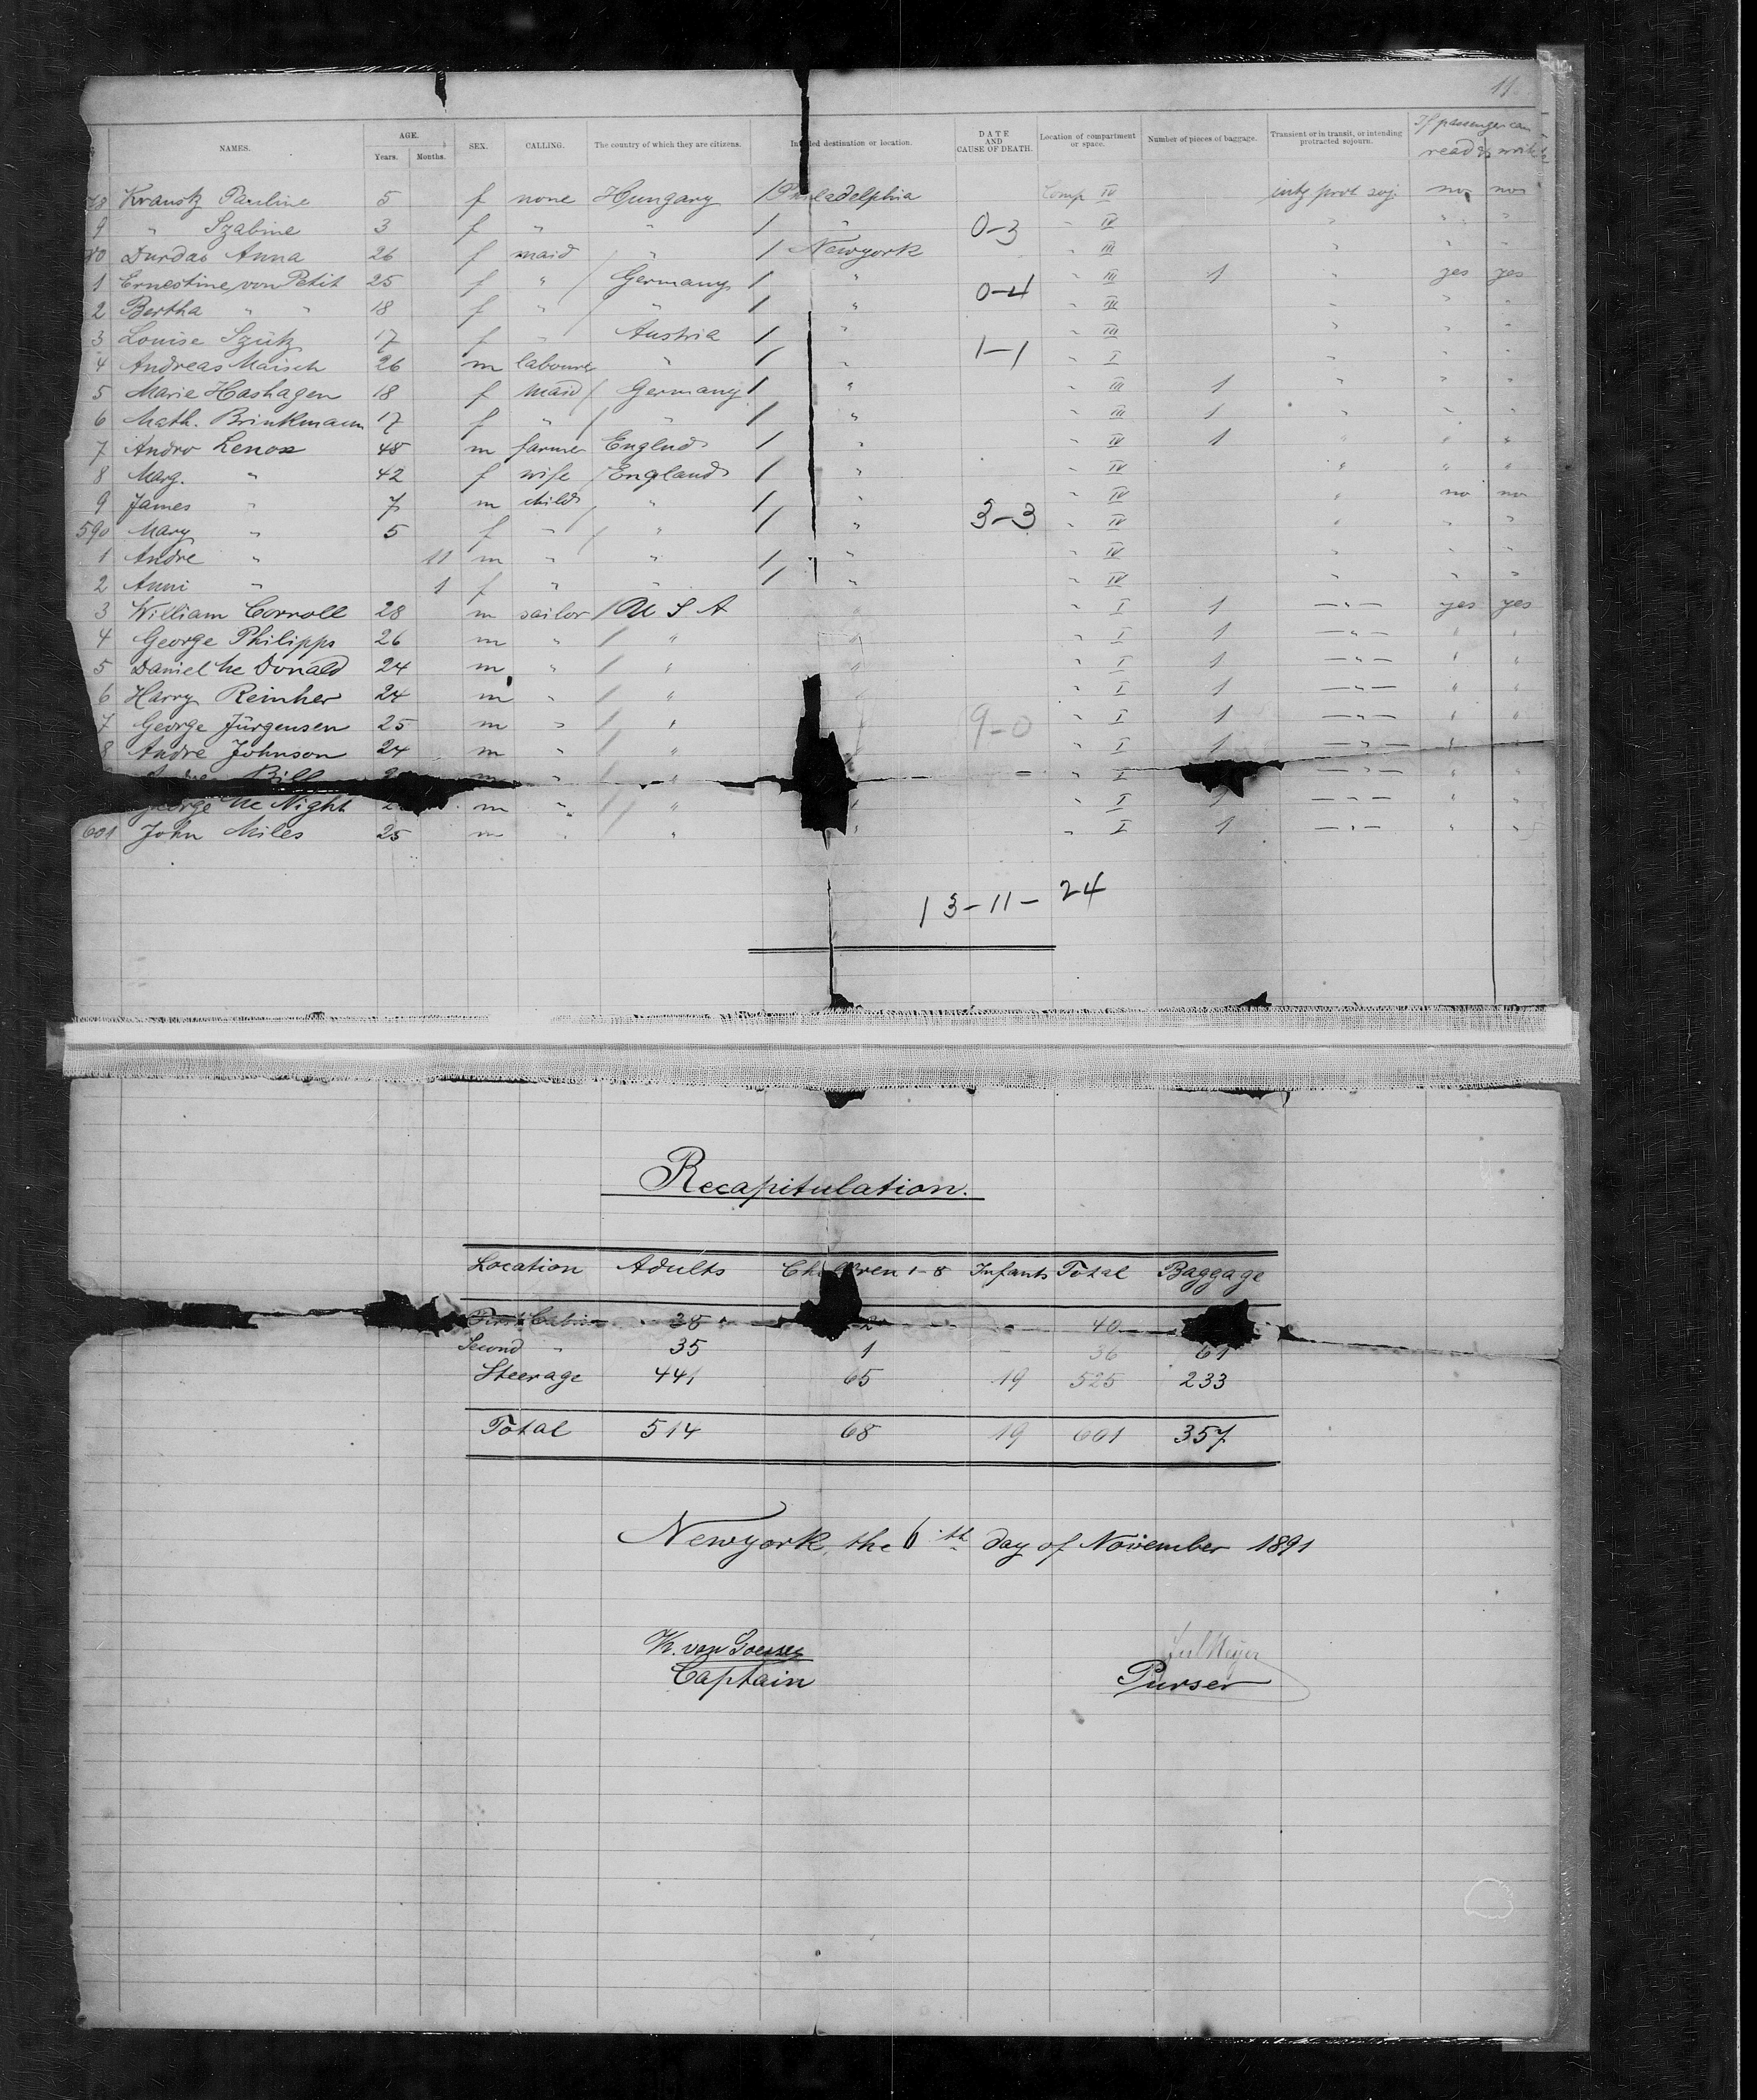 11
NAMES. AGE. Years. Months. SEX. CALLING. The country of which they are citizens. Intended destination or location. DATE AND CAUSE OF DEATH. Location of compartment or space. Number of pieces of baggage. Transient or in transit, or intending protracted sojourn. If passenger can read & write
78 Krausk Pauline 5 f none Hungary / Philadelphia Comp IV intg prot soj. no no
9 " Szabine 3 f " " / " 0-3 " IV " " "
80 Durdas Anna 26 f maid " / Newyork " III " " "
1 Ernestine von Petit 25 f " / Germany / " " III 1 " yes yes
2 Bertha " " 18 f " / " / " 0-4 " III " " "
3 Louise Szütz 17 f " Austria / " " III " " "
4 Andreas Maisch 26 m labourer " / " 1-1 " I " " "
5 Marie Hashagen 18 f maid / Germany / " " III 1 " " "
6 Math. Brinkmann 17 f " / " / " " III 1 " " "
7 Andro Lenox 48 m farmer Englnd / " " IV 1 " " "
8 Marg. " 42 f wife / England / " " IV " " "
9 James " 7 m child " / " " IV " no no
590 Mary " 5 f " / " / " 3-3 " IV " " "
1 Andre " 11 m " " / " " IV " " "
2 Anni " 1 f " " / " " IV " " "
3 William Corroll 28 m sailor / U S A " " I 1 — " — yes yes
4 George Philipps 26 m " / " " " I 1 — " — " "
5 Daniel Mc Donald 24 m " / " " " I 1 — " — " "
6 Harry Reinher 24 m " / " " I 1 — " — " "
7 George Jürgensen 25 m " / " " 9-0 " I 1 — " — " "
8 Andre Johnson 24 m " / " " " I 1 — " — " "
Bill m " / " " I — " — " "
George Mc Night 2 m " / " " " I 1 — " — " "
601 John Miles 25 m " " " " I 1 — " — " "
13-11-24
Recapitulation.
Location Adults Children 1-8 Infants Total Baggage
First Cabin 38 2 - 40
Second " 35 1 - 36 61
Steerage 441 65 19 525 233
Total 514 68 19 601 357
Newyork, the 6th day of November 1891
Captain
Purser